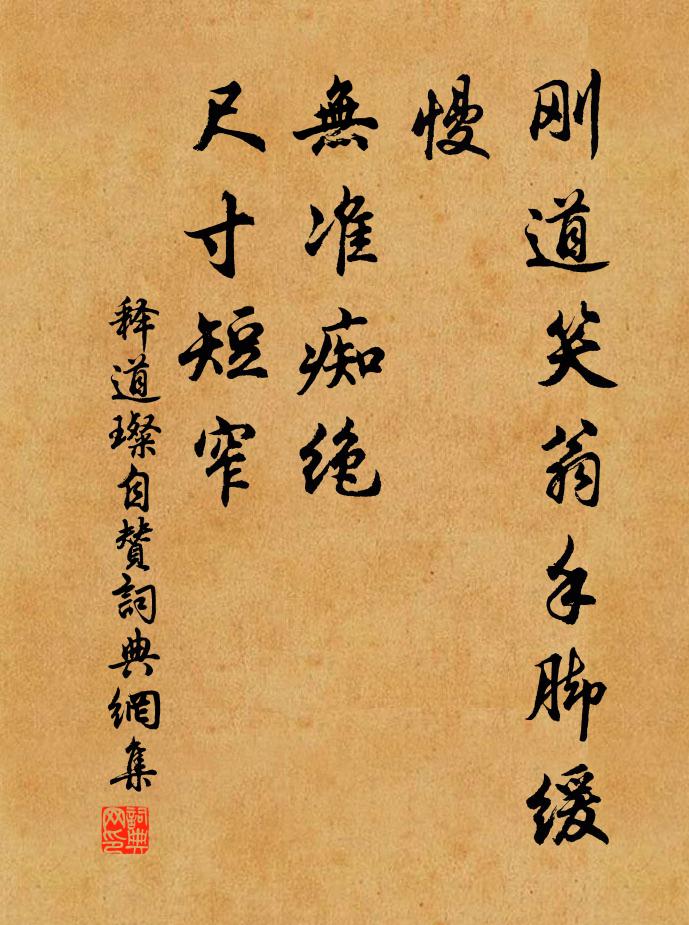 刚道笑翁手脚缓
慢
無准痴绝
尺寸短窄
释道璨自赞詞典網集
詞典
网印